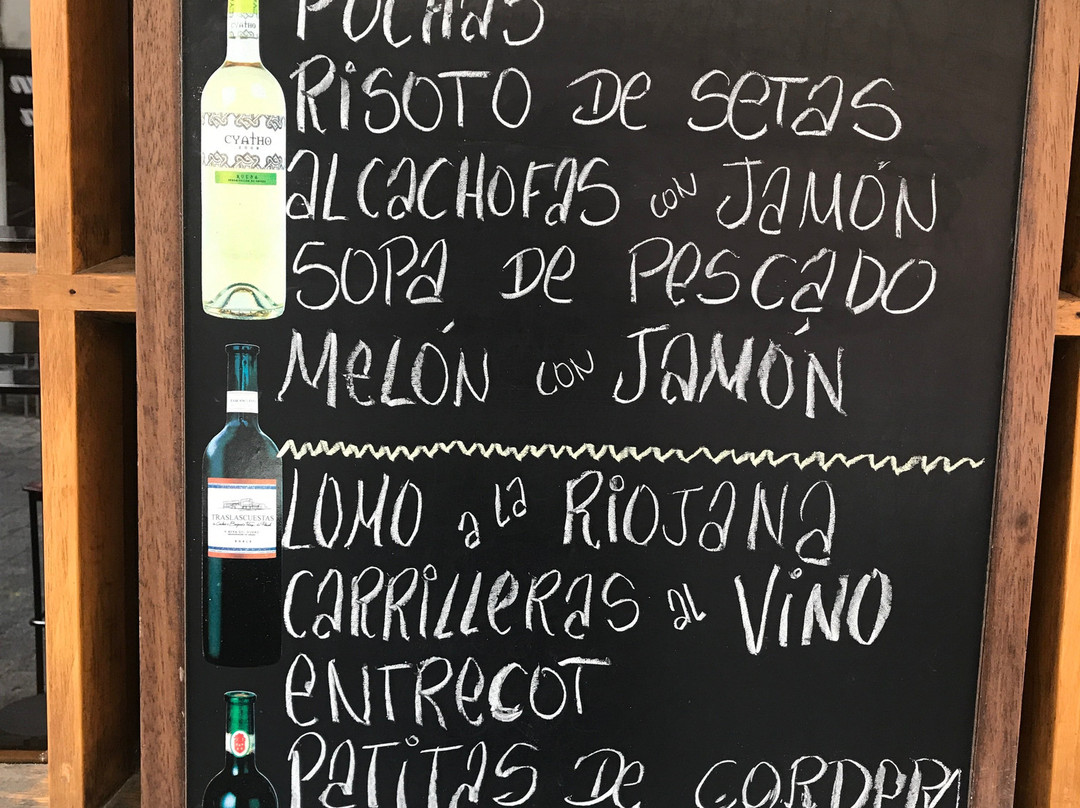 POCHAS
RISOTO DE SETAS
ALCACHOFAS CON JAMÓN
SOPA DE PESCADO
MELÓN CON JAMÓN
LOMO a la RIOJANA
CARRILLERAS AL VINO
ENTRECOT
PATITAS DE CORDERA
CYATHO
CYATHO
RUEDA
TRASLASCUESTAS